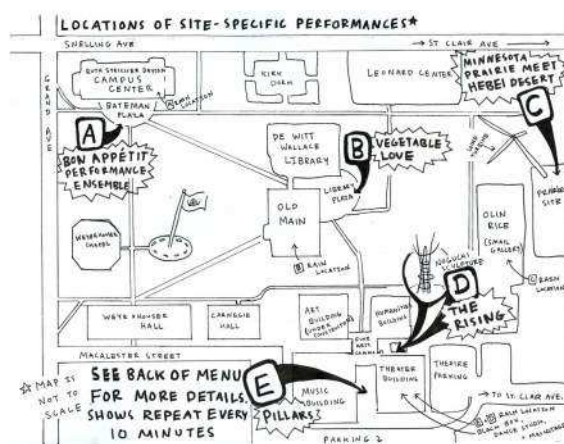 LOCATIONS OF SITE-SPECIFIC PERFORMANCES*
SNELLING AVE
→ ST CLAIR AVE →
GRAND AVE
RUTH STRICKER DAYTON
CAMPUS
CENTER
RAIN LOCATION
BATEMAN
PLAZA
A
BON APPÉTIT
PERFORMANCE
ENSEMBLE
KIRK
DORM
LEONARD CENTER
MINNESOTA
PRAIRIE MEET
HEBEI DESERT
C
WIND TURBINE
PRAIRIE
SITE
DE WITT
WALLACE
LIBRARY
B
VEGETABLE
LOVE
LIBRARY
PLAZA
OLD
MAIN
B RAIN
LOCATION
WEYERHAUSER
CHAPEL
OLIN
RICE
(SMAIL
GALLERY)
C RAIN
LOCATION
NOGUCHI
SCULPTURE
D
THE
RISING
WEYERHAUSER
HALL
CARNEGIE
HALL
ART
BUILDING
(UNDER
CONSTRUCTION)
HUMANITIES
BUILDING
FINE
ARTS
COMMONS
MACALESTER STREET
☆ MAP IS
NOT TO
SCALE
SEE BACK OF MENU
FOR MORE DETAILS.
SHOWS REPEAT EVERY
10 MINUTES
E
PILLARS
MUSIC
BUILDING
THEATER
BUILDING
THEATRE
PARKING
→ TO ST. CLAIR AVE.
RAIN LOCATION
BLACK BOX,
DANCE STUDIO,
+ MAINSTAGE
PARKING 2